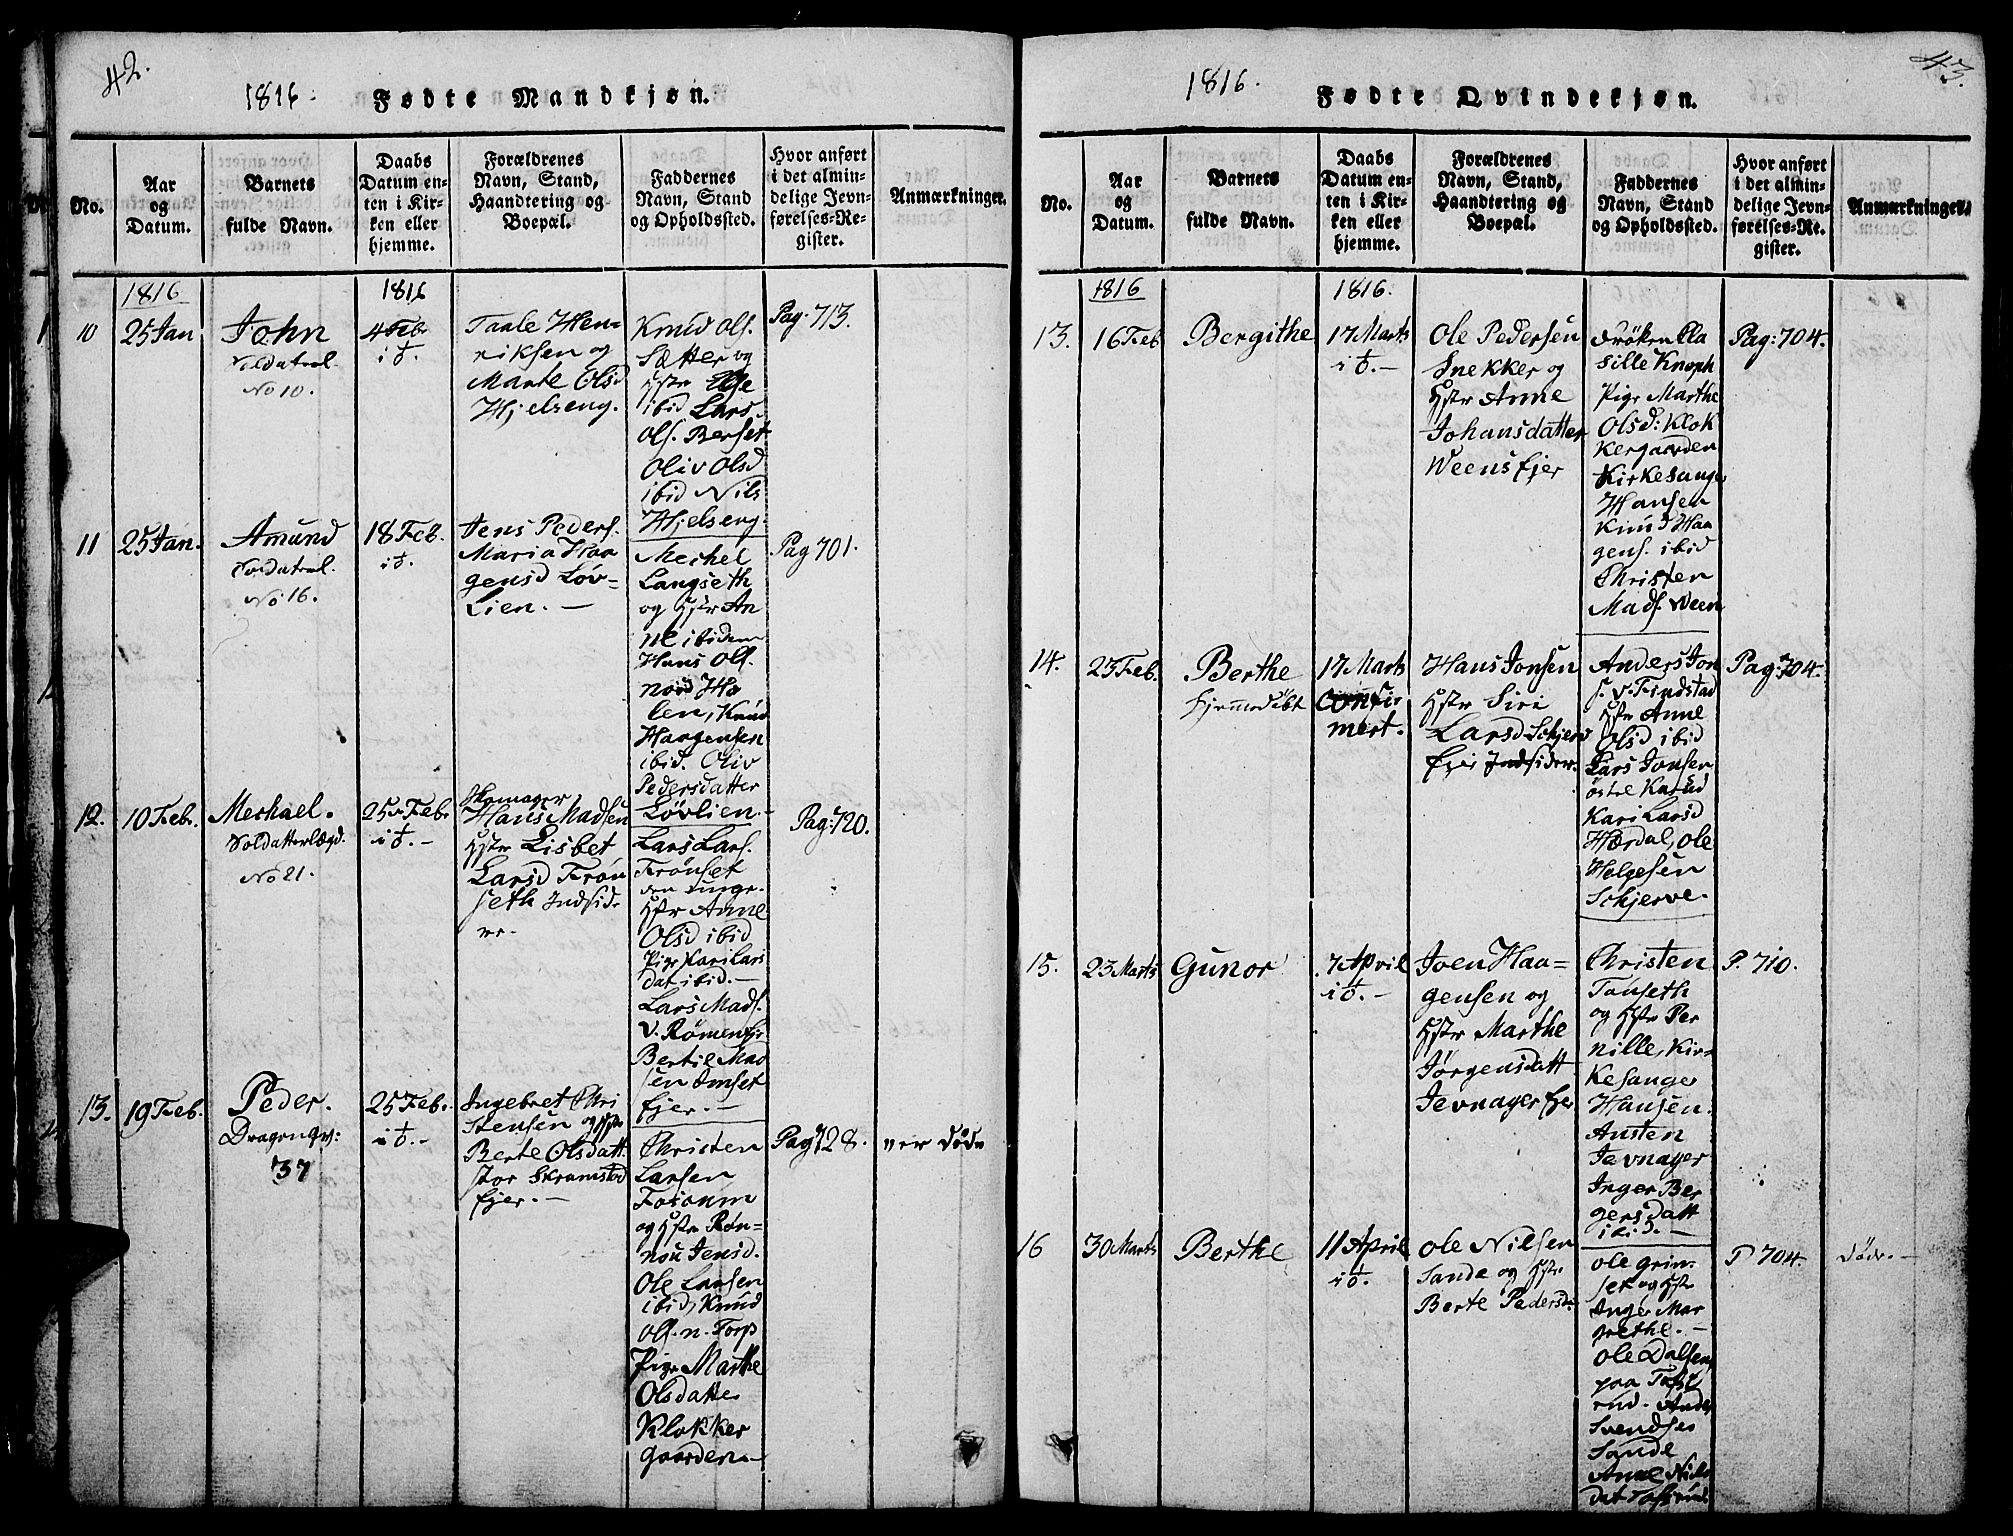 42.
1816. Fødte Mandkjøn.
No.
Aar
og
Datum.
Barnets
fulde Navn.
Daabs
Datum en-
ten i Kir-
ken eller
hjemme.
Forældrenes
Navn, Stand,
Haandtering og
Boepæl.
Faddernes
Navn, Stand
og Opholdssted.
Hvor anført
i det almin-
delige Jevn-
førelses-Re-
gister.
Anmærkninger.
1816
1816
10
25 Jan
John
No 10.
4 Feb
Taale Hen-
riksen og
Marte Olsd
Hjelseng.
Knud Ols.
Sætter og
Hstr Else
ibid Lars
Ols. Berset
Oliv Olsd
ibid Nils
Hjelseng.
Pag. 713.
11
25 Jan.
Amund
No 16.
18 Feb.
Jens Peders.
Maria Haa
gensd Løv-
Lien. —
Mechel
Langseth
og Hstr An
ne ibidem
Hans Ols.
nord Ho
len, Knud
Haagensen
ibid. Oliv
Pedersdatter
Løvlien. —
Pag 701.
12.
10 Feb.
Mechael.
Soldatterlægd.
No 21.
25 Feb.
Skomager
Hans Madsen
Hstr Lisbet
Larsd Frøn
seth Indsid-
er.
Lars Lars.
Frønset
den unge.
Hstr Anne
Olsd ibid
Pige Kari Lars
dat ibid. —
Lars Mads.
v. Rømen Ejr
Bertil Mad
sen Imset
Ejer. —
Pag: 720.
13.
19 Feb.
Peder.
37
25 Feb.
Ingebret Chri
stensen og Hstr
Berte Olsdatt.
stor Skramstad
Ejer. —
Christen
Larsen
Fosoum
og Hstr Røn-
nou Jensd.
Ole Larsen
ibid, Knud
Ols. n. Torp
Pige Marthe
Olsdatter
Klokker
gaarden. —
Pag 728.
er Døde
43.
1816. Fødte Qvindekjøn.
No.
Aar
og
Datum.
Barnets
fulde Navn.
Daabs
Datum en-
ten i Kir-
ken eller
hjemme.
Forældrenes
Navn, Stand,
Haandtering og
Boepæl.
Faddernes
Navn, Stand
og Opholdssted.
Hvor anført
i det almin-
delige Jevn-
førelses-Re-
gister.
Anmærkninger.
1816
1816.
13.
16 Feb
Bergithe
17 Marts
Ole Pedersen
Snekker og
Hstr Anne
Johansdatter
Weens Ejer
Frøken Ella
sille Knoph
Pige Marthe
Olsd: Klok
kergaarden
Kirkesanger
Hansen
Knud Haa
gens. ibid
Christen
Mads. Ween
Pag: 704.
14.
23 Feb.
Berthe
hjemmedøbt
17 Marts
Confir-
mert.
Hans Jonsen
Hstr Siri
Larsd Schjerv
Ejer Indsider.
Anders Jon
s. v. Findstad
Hstr Anne
Olsd ibid
Lars Jonsen
Kari Larsd
Hærdal, Ole
Helgesen
Schjerve.
Pag: 704.
15.
23 Marts
Gunor
7 April
Joen Haa-
gensen og
Hstr Marthe
Jørgensdatt
Jevnager Ejer
Christen
Tanseth
og Hstr Per
nille, Kir-
kesanger
Hansen.
Austen
Jevnager
Inger Ber
gersdatt
ibid. —
P. 710.
16
30 Marts
Berthe
11 April
Ole Nilsen
Sande og Hstr
Berte Pedersd.
Ole Grim-
set og Hstr
Inger Mar
grethe. —
Ole Dalsen
paa
rud. Anders
Svendsen
Sande
Anne Niels
dat
P 704.
Døde. —